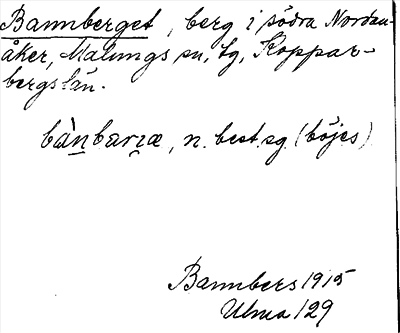 Bannberget, berg i södra Nordan-
åker, Malungs sn, tg, Koppar-
bergs län.
n. best. sg. (böjes)
Bannbers 1915
Ulma 129